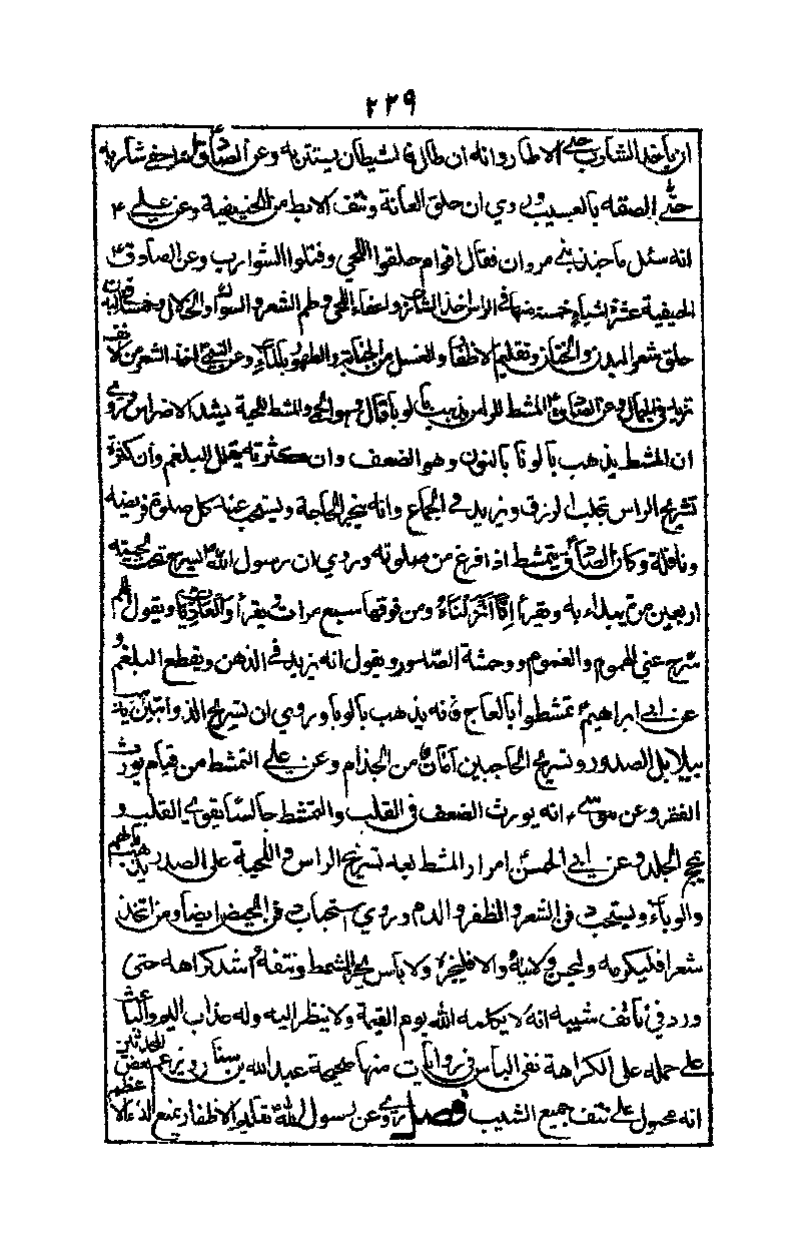 ٢٢٩
ان يأخذ الشارب حتى الاطار وانه ان طال فالشيطان يستتر به وعن الصادق انه احفى شاربه
حتى الصقه بالعسيب وروي ان حلق العانة ونتف الابط من الحنيفية وعن علي ع
انه سئل ما جند بني مروان فقال اقوام حلقوا اللحى وفتلوا الشوارب وعن الصادق ع
الحنيفية عشرة اشياء خمسة منها في الراس اخذ الشارب واعفاء اللحى وطم الشعر والسواك والخلال وخمسة في البدن
حلق شعر البدن والختان وتقليم الاظفار والغسل من الجنابة والطهور بالماء وعن اخذ الشعر من الانف
يزيد في الجمال وعن الصادق المشط للراس يذهب بالوبا قال وهو الحمى والمشط للحية يشد الاضراس وروي
ان المشط يذهب بالونا بالنون وهو الضعف وان كثرته تقلل البلغم وأن كثرة
تسريح الراس تجلب الرزق ويزيد في الجماع وانه ينجز الحاجة ويستحب عند كل صلوة فريضة
ونافلة وكان الصادق يتمشط اذا فرغ من صلوته وروي ان رسول الله يسرح تحت لحيته
اربعين مرة يبداء به ويقرأ إنّا أنزلناه ومن فوقها سبع مرات ويقرأ والعاديات ويقول اللهم
سرح عني الهموم والغموم ووحشة الصدور ويقول انه يزيد في الذهن ويقطع البلغم و
عن ابي ابراهيم تمشطوا بالعاج فانه يذهب بالوبا وروي ان تسريح الذوابتين يذهب
ببلابل الصدور وتسريح الحاجبين امان من الجذام وعن علي التمشط من قيام يورث
الفقر وعن موسى ع انه يورث الضعف في القلب والتمشط جالسا يقوي القلب و
يمخج الجلد وعن ابي الحسن امرار المشط بعد تسريح الراس واللحية على الصدر يذهب بالهم
والوباء ويستحب دفن الشعر والظفر والدم وروي استحباب دفن المحيض ايضا ومن اتخذ
شعرا فليكرمه وليحسن ولايته والا فليجزه ولا باس بجز الشمط ونتفه اشد كراهة حتى
ورد في ناتف شيبه انه لا يكلمه الله يوم القيمة ولا ينظر اليه وله عذاب اليم والباعث
على حمله على الكراهة نفي الباس في روايات منها صحيحة عبد الله بن سنان وزعم بعض المحدثين
انه محمول على نتف جميع الشيب فصل روي عن رسول الله تقليم الاظفار يمنع الداء الاعظم